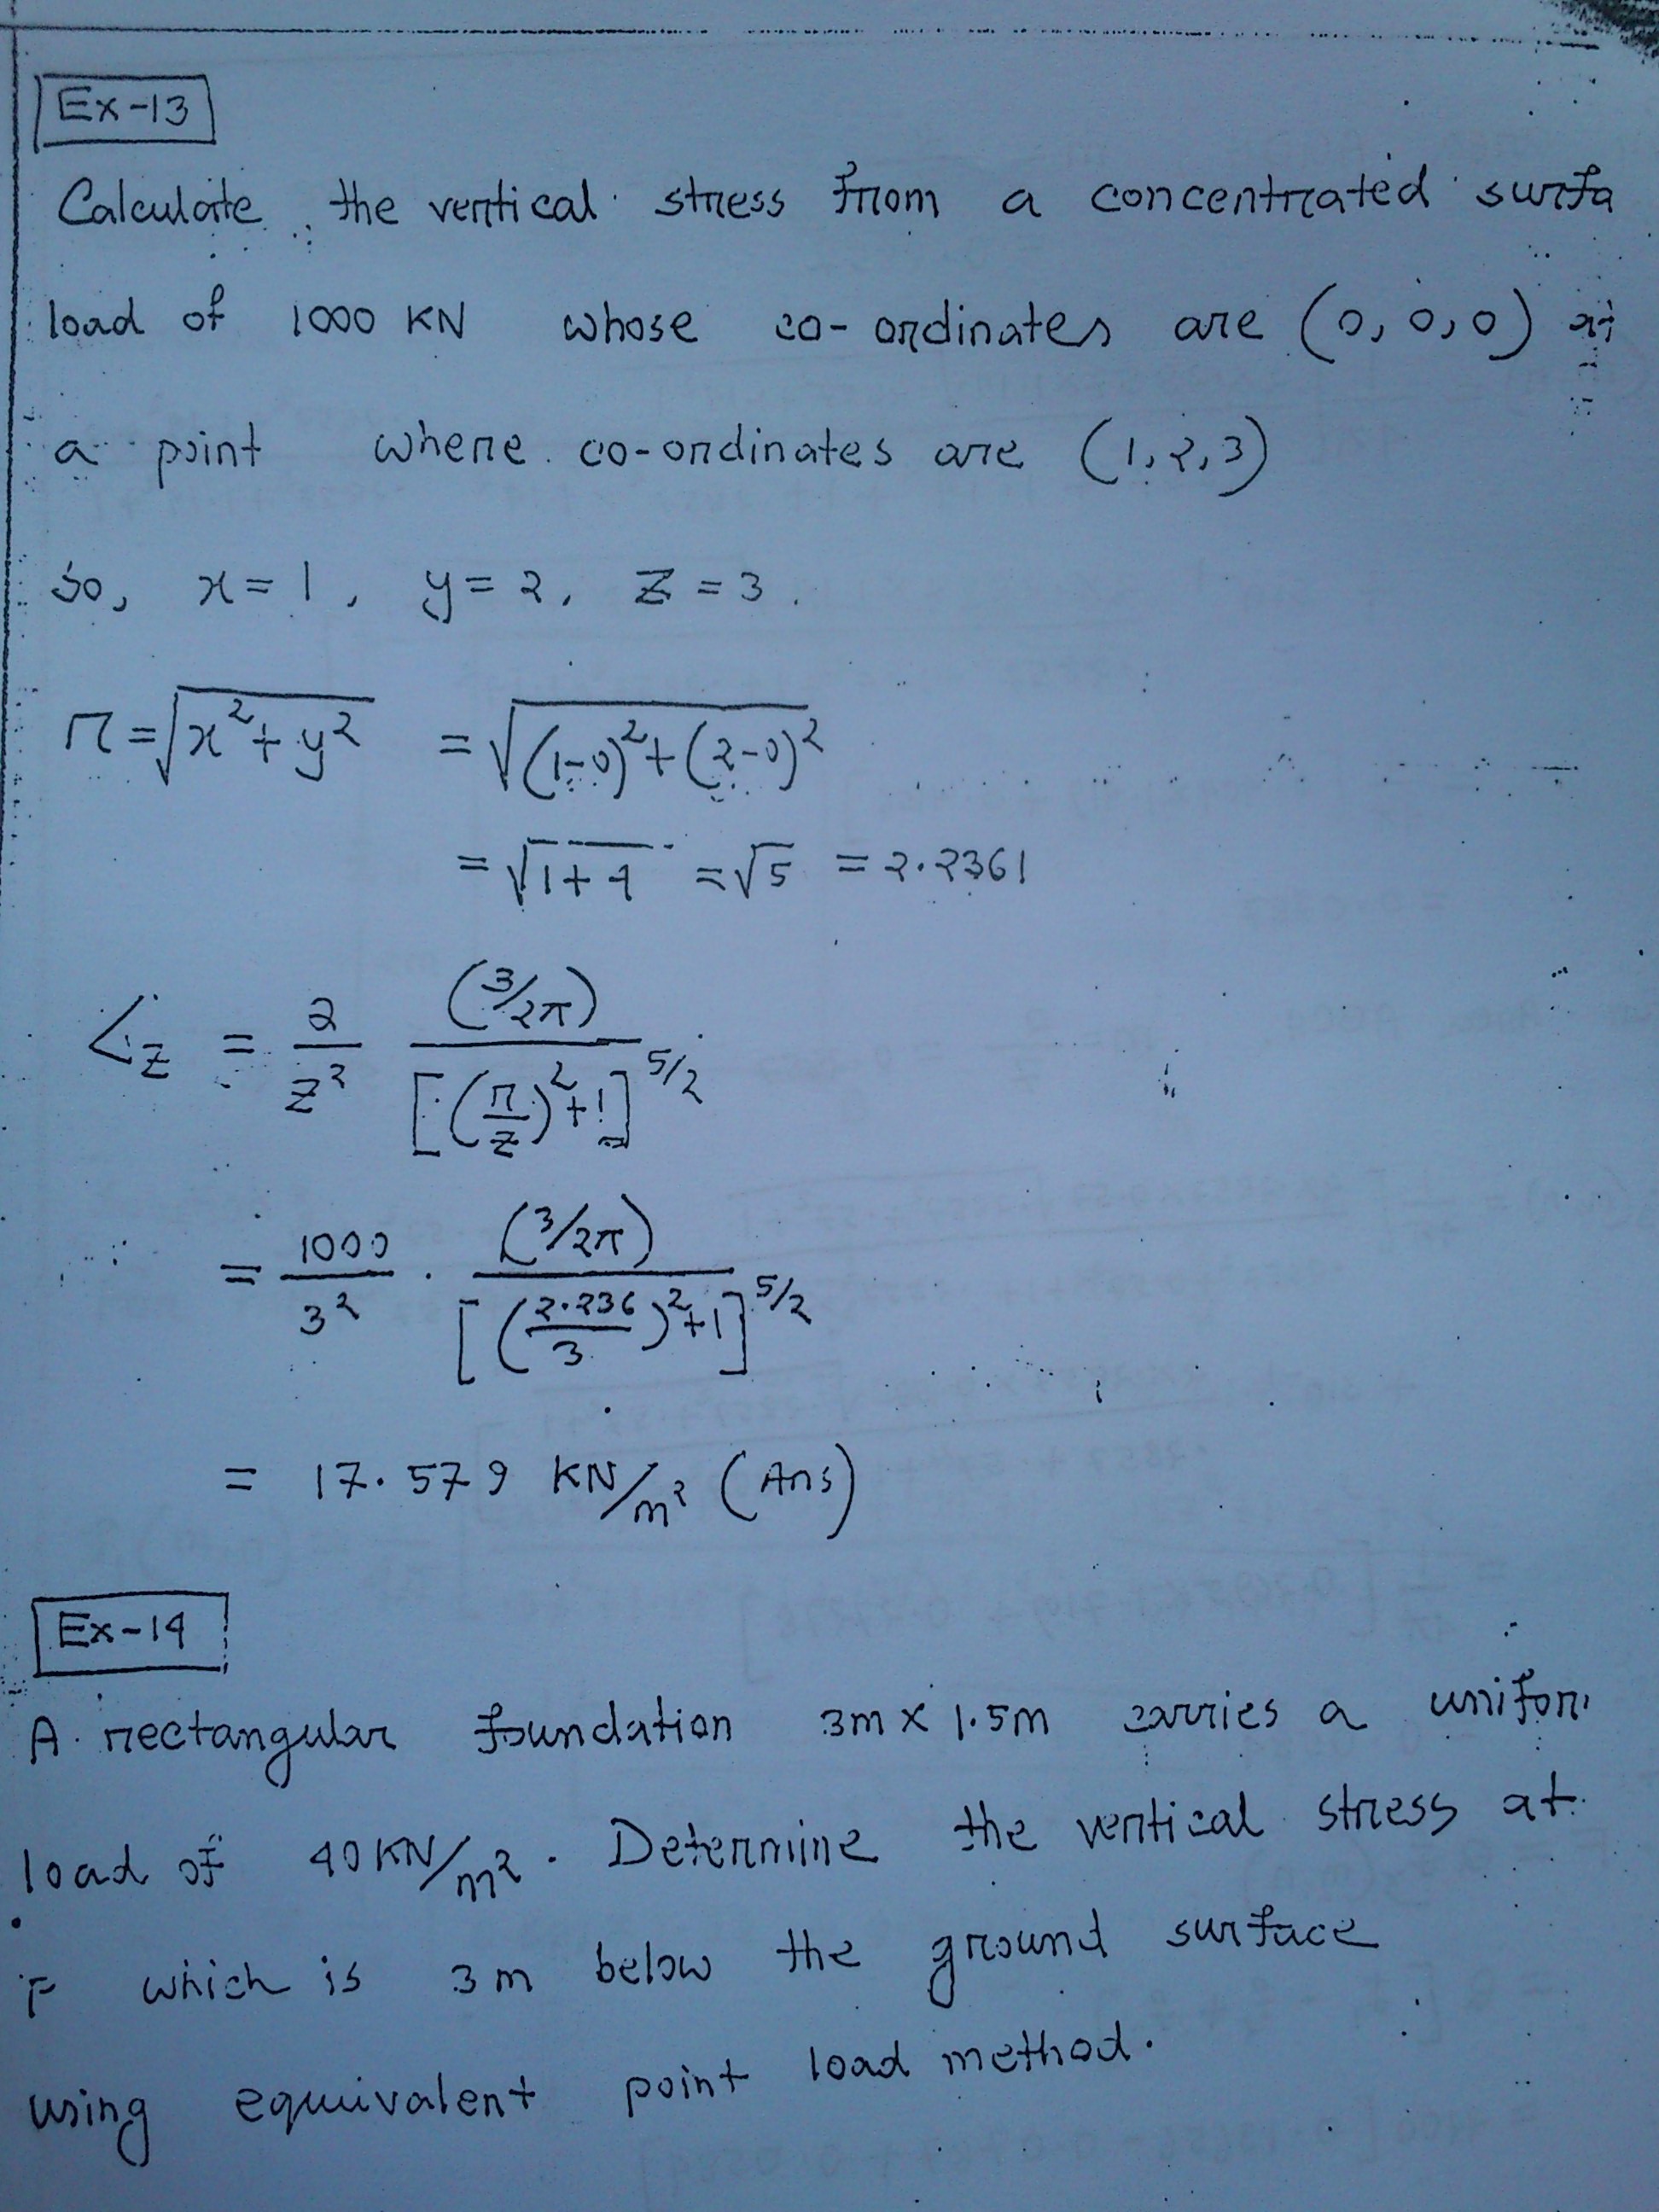 Ex-13
Calculate the vertical stress from a concentrated surfa
load of 1000 KN whose co-ordinates are (0, 0, 0) at
a point where co-ordinates are (1, 2, 3)
So, x = 1, y = 2, z = 3.
r = √(x² + y²) = √((1-0)² + (2-0)²)
= √(1+4) = √5 = 2.2361
σz = Q/z² (3/2π)/[(r/z)²+1]^5/2
= 1000/3² · (3/2π)/[(2.236/3)²+1]^5/2
= 17.579 KN/m² (Ans)
Ex-14
A rectangular foundation 3m x 1.5m carries a uniform
load of 40 KN/m². Determine the vertical stress at
F which is 3m below the ground surface
using equivalent point load method.